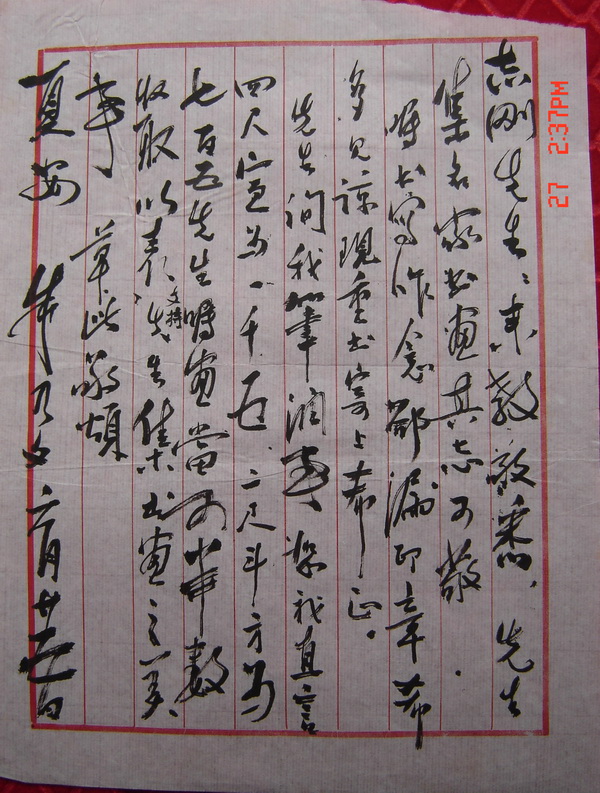 志刚先生：来教敬悉，先生
集名家书画其志可敬，
嘱书写作念鄙漏印章希
多见谅现重书寄上希正。
先生询我笔润事恕我直言
四尺宣为一千元，二尺斗方为
七百元先生嘱画当可半数
收取以表支持先生集书画之美
事 草此敬颂
夏安 朱乃文 六月廿五日
27 2:37PM